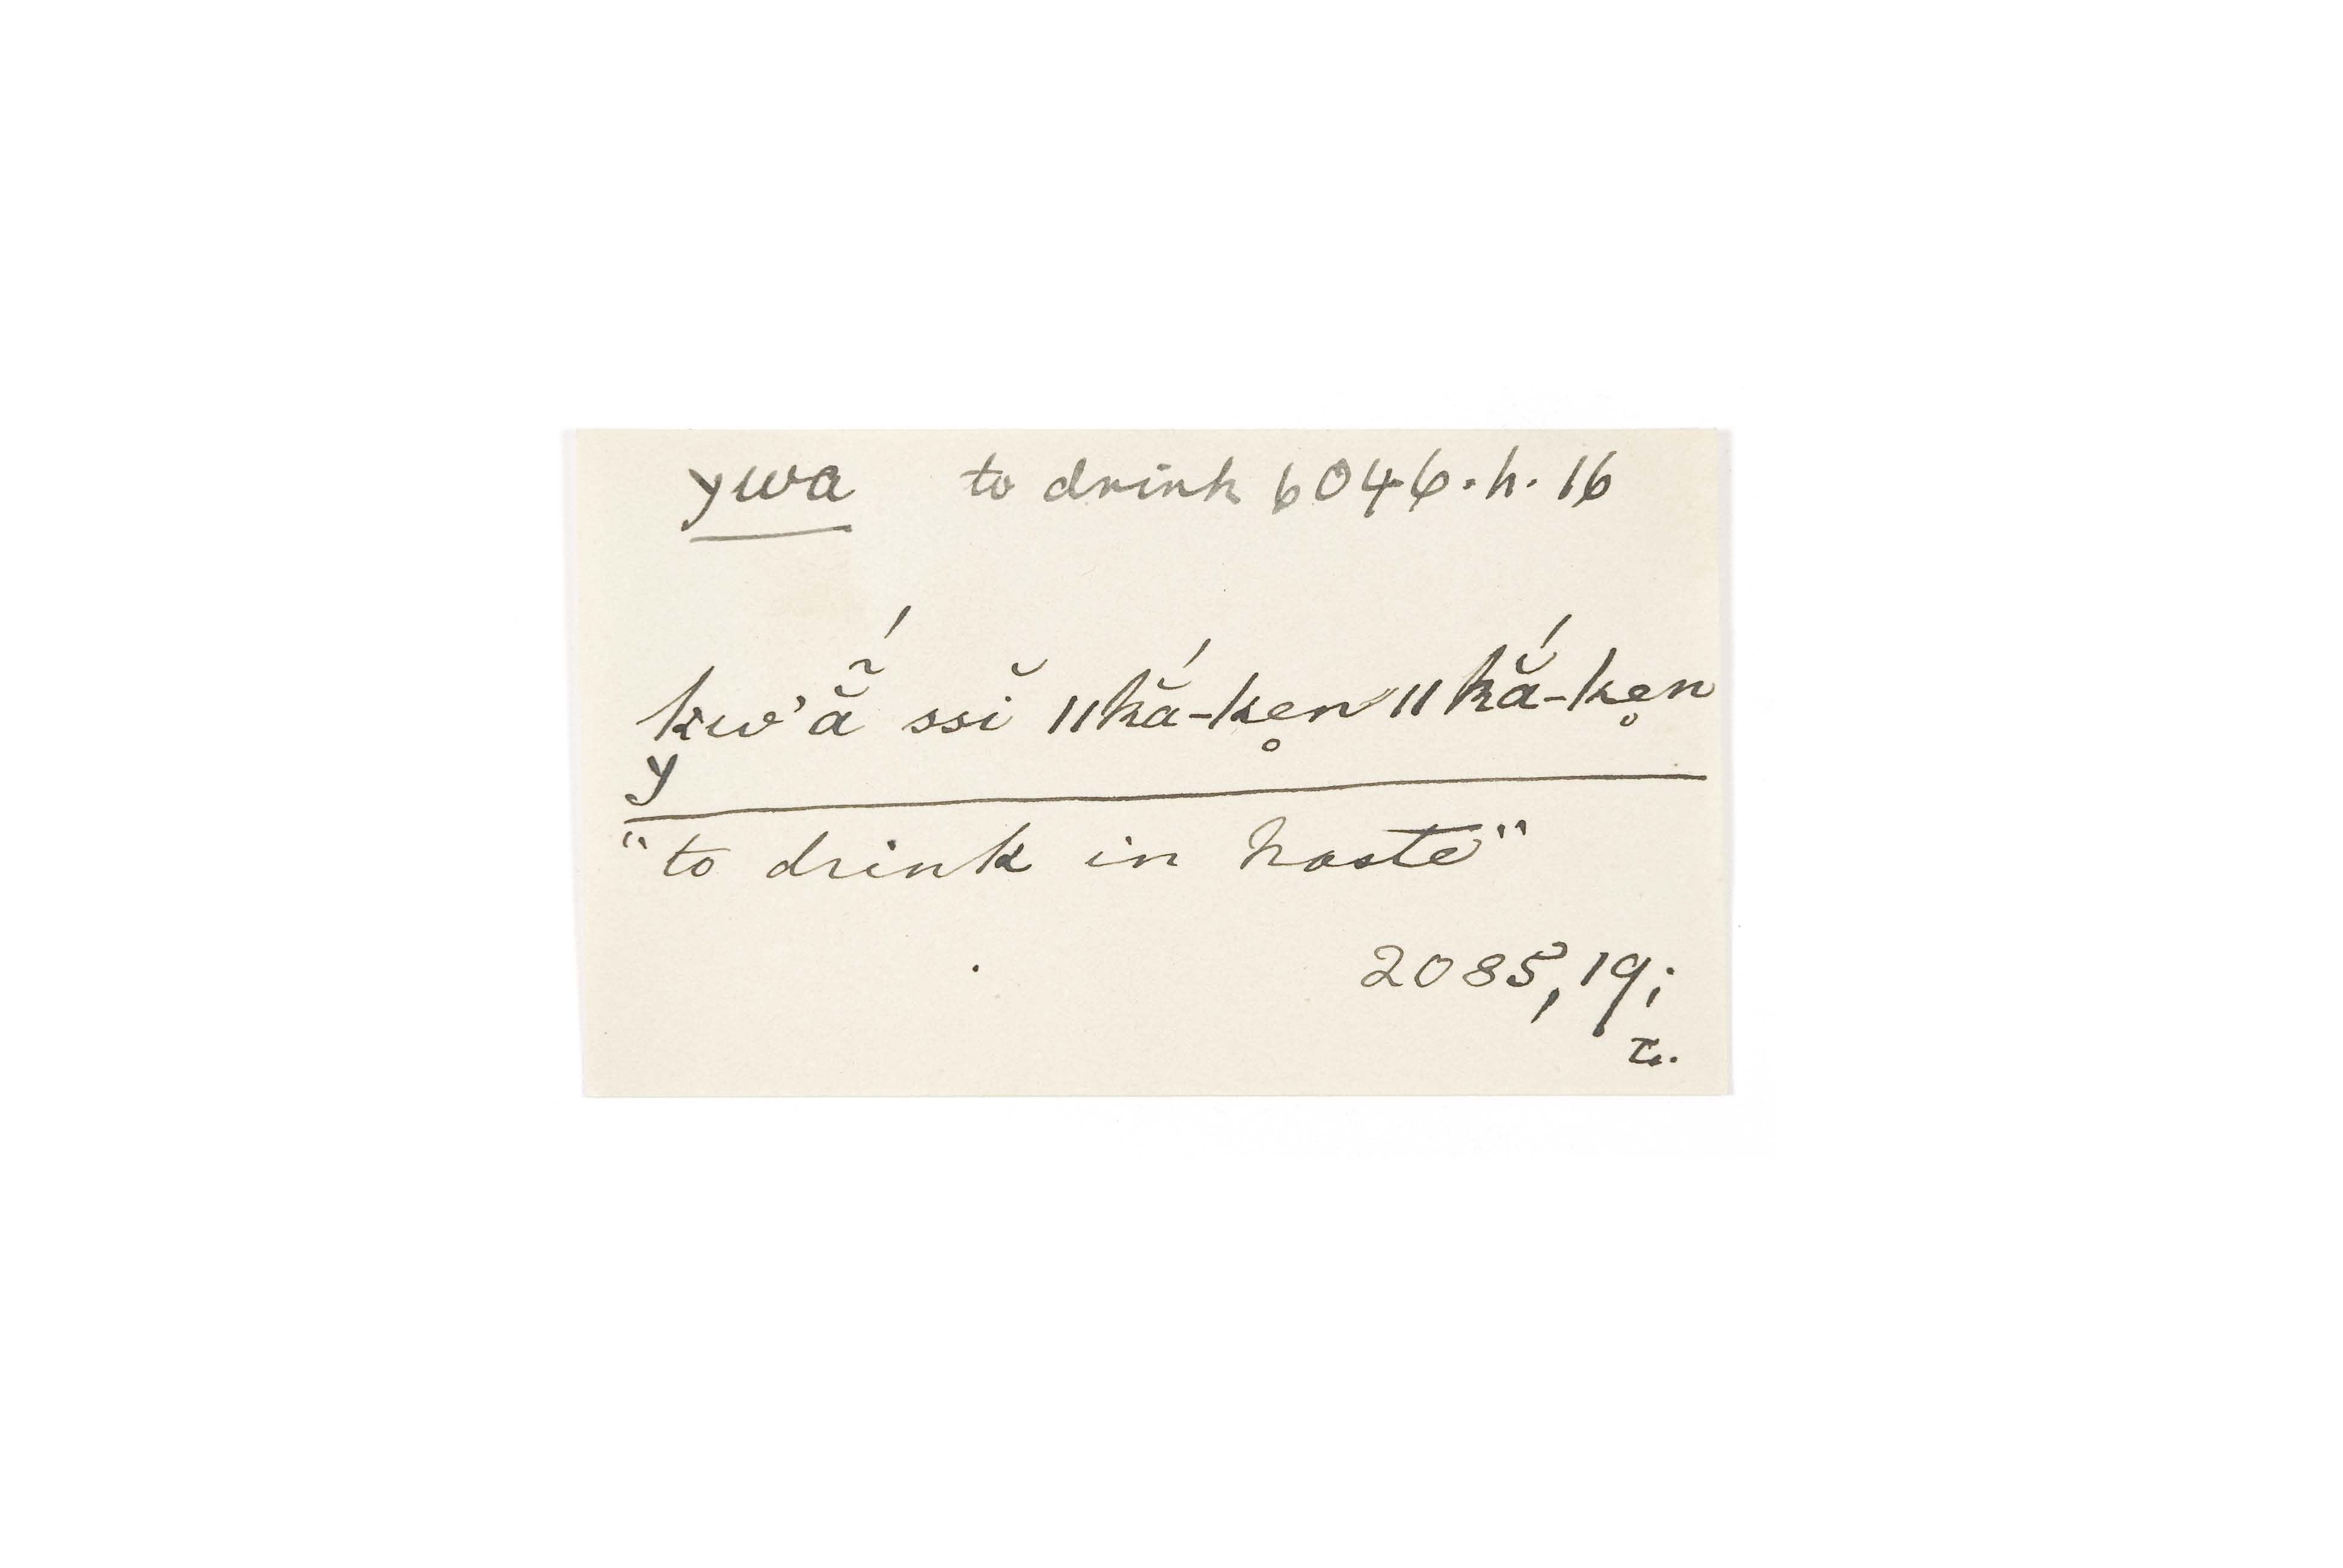 ywa to drink 6046.h.16
k͏̯wʼằ̃́ ssĭ ǁkắ-ken̥ ǁkắ-ken̥
y
"to drink in haste"
2085, 19;
z.